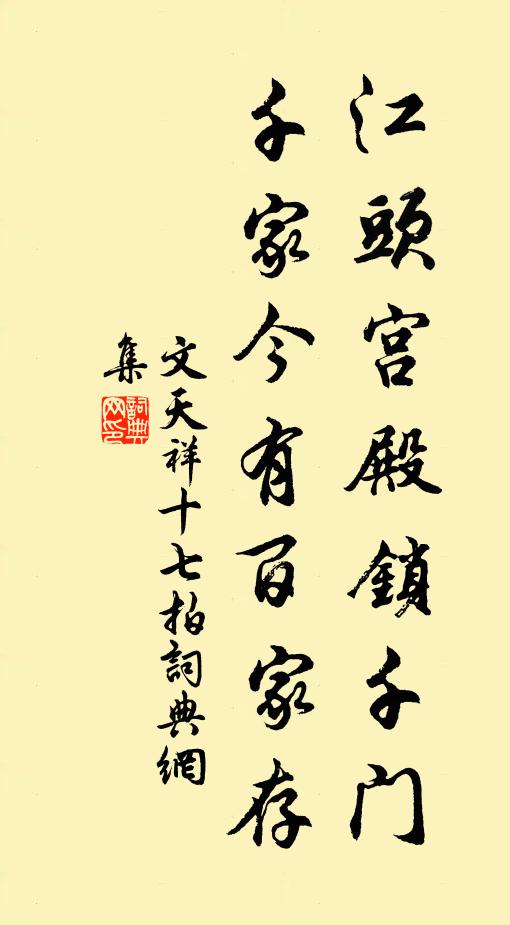 江頭宫殿鎖千门
千家今有百家存
文天祥十七拍詞典網
集
詞典網印